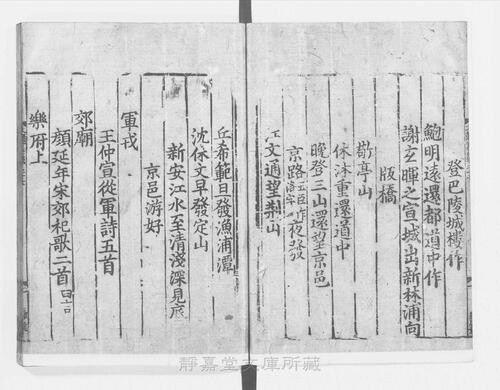 登巴陵城樓作
鮑明遠還都道中作
謝玄暉之宣城出新林浦向
版橋
敬亭山
休沐重還道中
晚登三山還望京邑
京路夜發
江文通望荆山
丘希範旦發漁浦潭
沈休文早發定山
新安江水至清淺深見底
京邑游好
軍戎
王仲宣從軍詩五首
郊廟
顔延年宋郊祀歌二首
樂府上
靜嘉堂文庫所藏